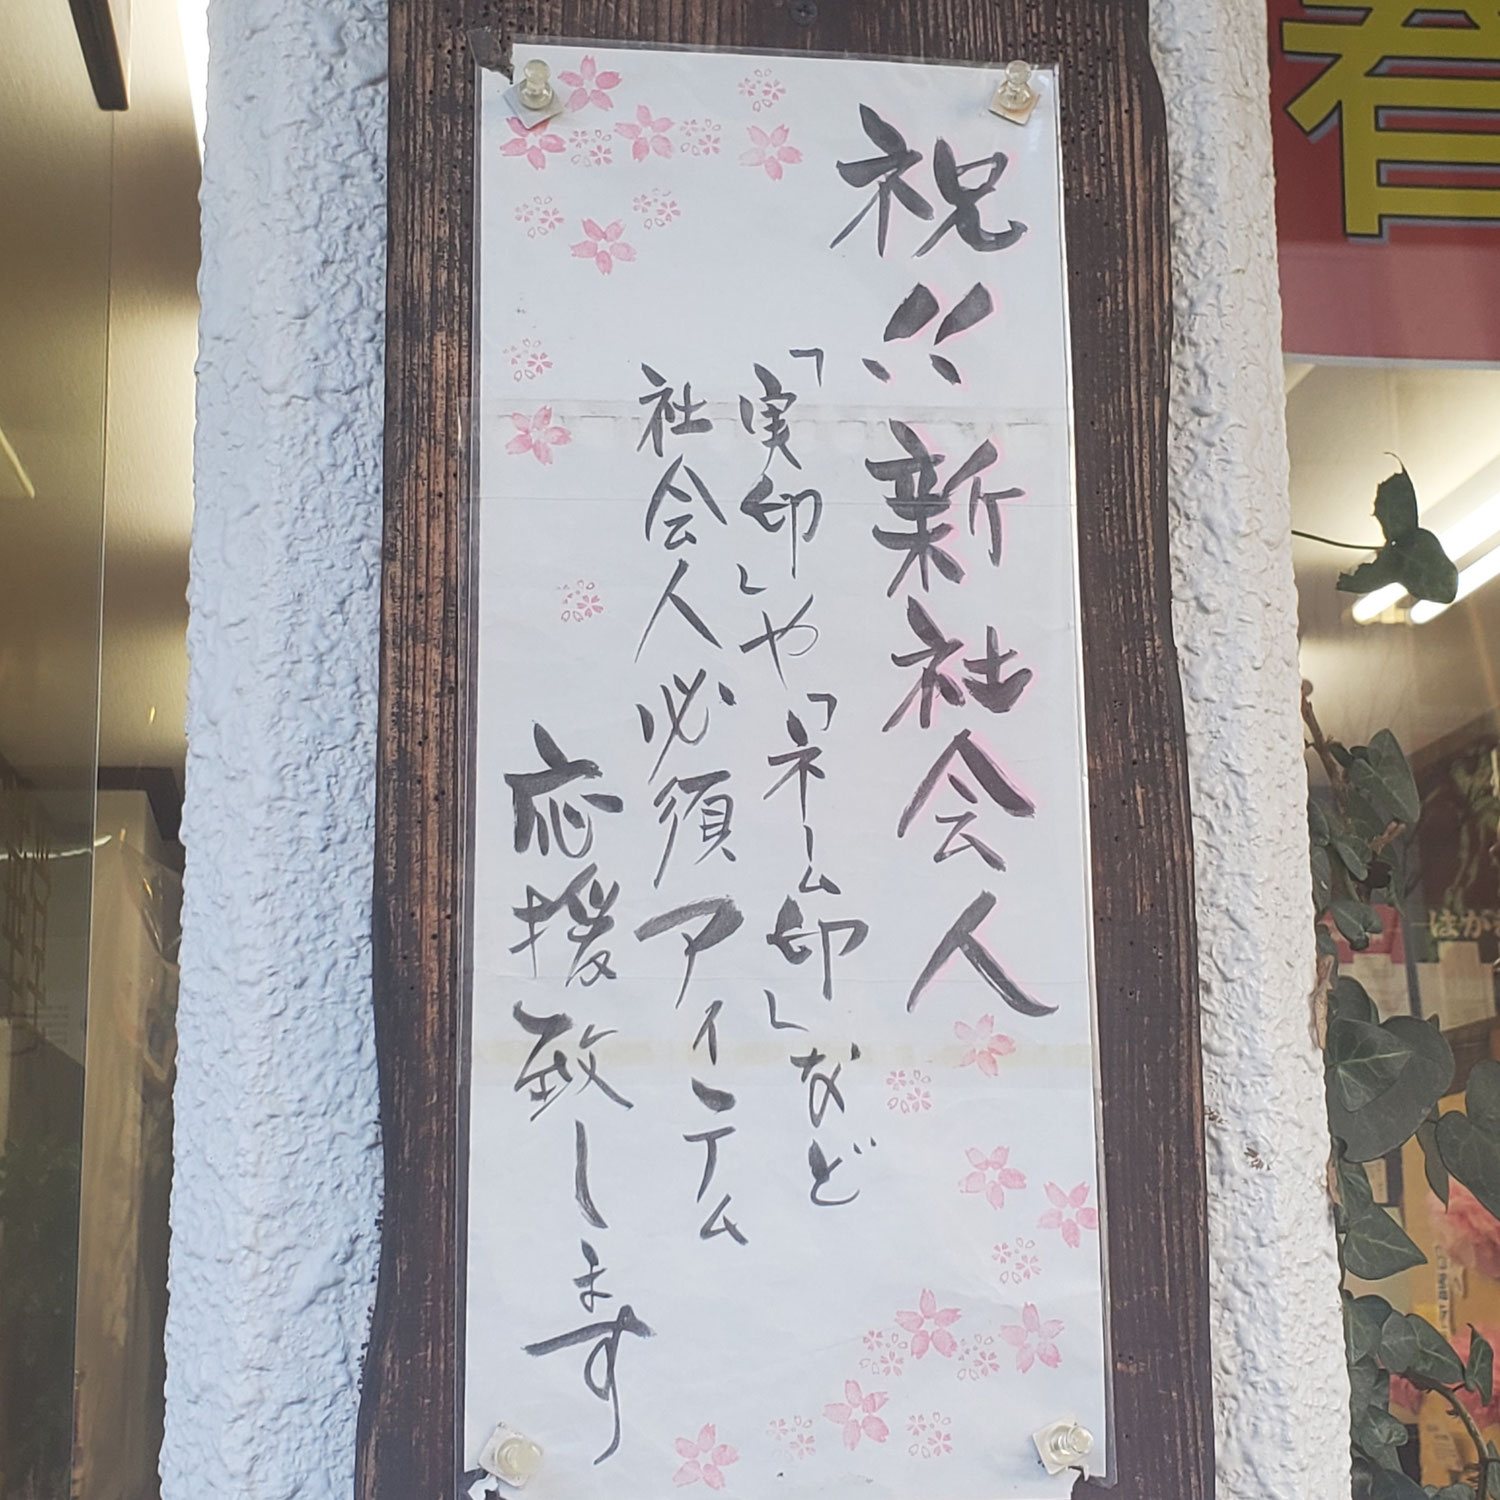 祝!! 新社会人
「実印」や「ネーム印」など
社会人必須アイテム
応援致します
春
はがき